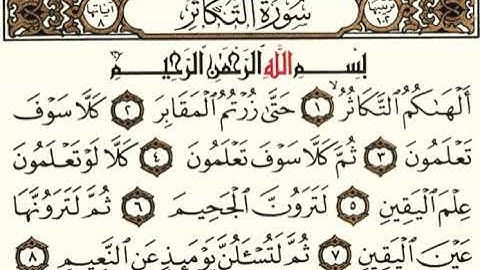 آياتها ٨ سورة التكاثر ترتيبها ١٠٢
بِسْمِ اللَّهِ الرَّحْمَٰنِ الرَّحِيمِ
أَلْهَىٰكُمُ التَّكَاثُرُ ١ حَتَّىٰ زُرْتُمُ الْمَقَابِرَ ٢ كَلَّا سَوْفَ
تَعْلَمُونَ ٣ ثُمَّ كَلَّا سَوْفَ تَعْلَمُونَ ٤ كَلَّا لَوْ تَعْلَمُونَ
عِلْمَ الْيَقِينِ ٥ لَتَرَوُنَّ الْجَحِيمَ ٦ ثُمَّ لَتَرَوُنَّهَا
عَيْنَ الْيَقِينِ ٧ ثُمَّ لَتُسْـَٔلُنَّ يَوْمَئِذٍ عَنِ النَّعِيمِ ٨